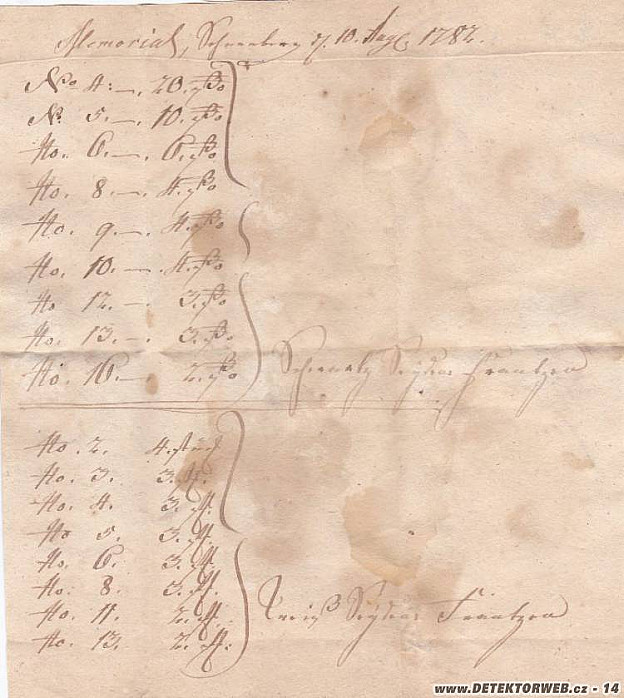 Memorial, Schneeberg d. 10. Aug. 1782.
No. 4. —. 20.
No. 5. —. 10.
No. 6. —. 6.
No. 8. —. 4.
No. 9. —. 4.
No. 10. —. 4.
No 12. —. 3.
No. 13. —. 3.
No. 16. — 2.
Schwartz Seyden Frantzen
No. 2. 4. stück
No. 3. 3. st.
No. 4. 3. st.
No 5. 3. st.
No. 6. 3. st.
No. 8. 3. st.
No. 11. 2. st.
No. 13. 2. st.
Weiß Seyden Frantzen
www.DETEKTORWEB.cz - 14